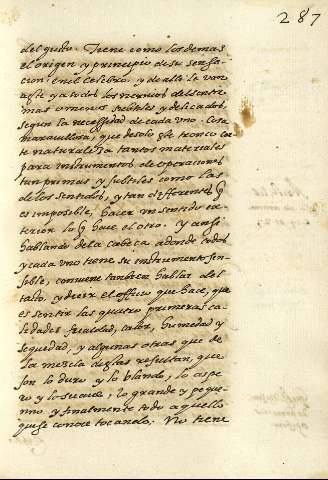 287
del gusto. Tiene como los demas
el origen y principio de su sensa-
cion en el celebro. y de alli le van
a este y a todos los niervios delos otros
mas o menos subtiles y delicados,
segun la necessidad de cada uno. Cosa
maravillosa, que de solo este tronco cor-
te naturaleza tantos materiales
para instrumentos de operaciones
tan primas y subtiles como las
de los sentidos, y tan differentes q̃
es imposible, hacer un sentido ex-
terior lo q̃ hace el otro. Y ansi
hablando de la cabeça adonde todos
y cada uno tiene su instrumento sen-
sible, conviene tambien hablar del
tacto, y decir el officio que hace, que
es sentir las quatro primeras ca-
lidades frialdad, calor, humedad y
sequedad, y algunas otras que de
la mezcla dellas resultan, que
son lo duro y lo blando, lo aspe-
ro y lo suave, lo grande y peque-
nno y finalmente todo aquello
que se conoce tocando. No tiene